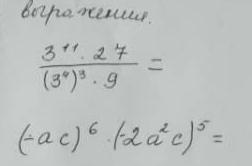 выражения.
3¹¹ · 27
(3⁴)³ · 9 =
(-ac)⁶ · (-2a²c)⁵ =